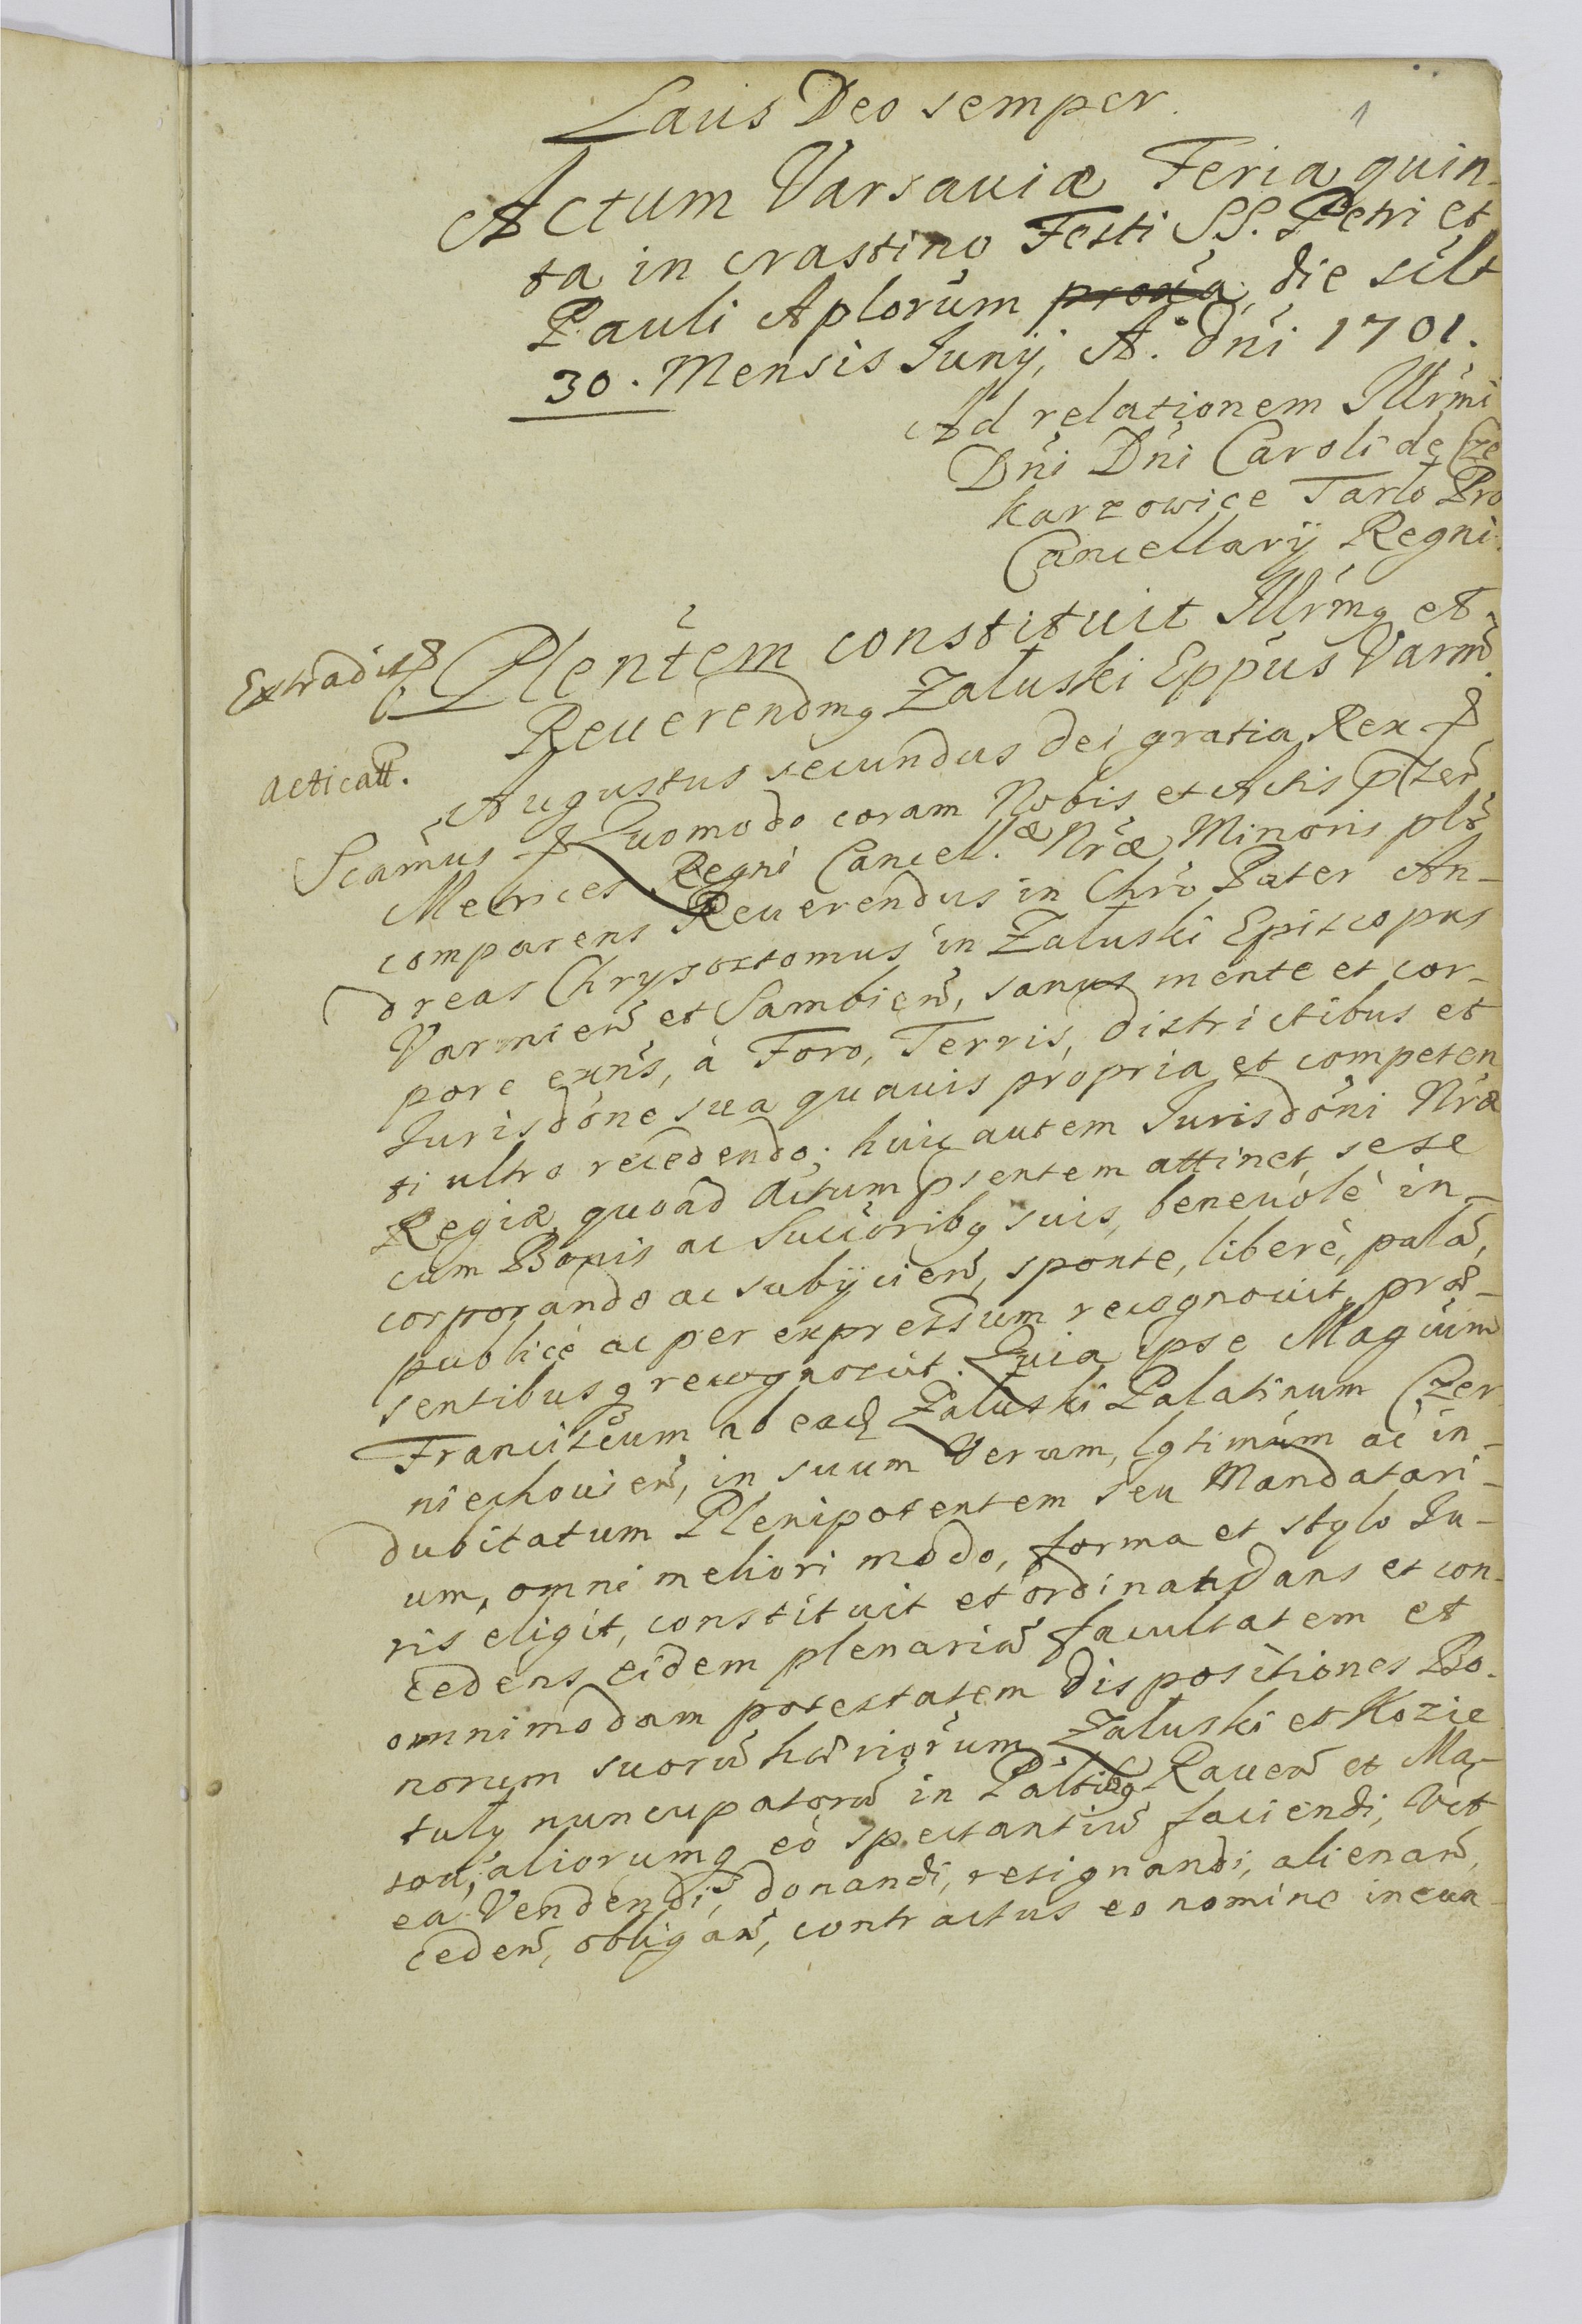 Laus Deo semper.
1
Actum Varsaviæ Feria quin-
ta in crastino Festi SS. Petri et
Pauli Aplorum proxa die silt
30. Mensis Junij, A.° dni 1701.
Ad relationem Illrmi
Dni Dni Caroli de Cze
karzowice Tarlo Pro
Cancellarij Regni.
Extradit
Plentem constituit Illrmq et
Reuerendmq Zaluski Eppus Varm.
acticatt.
Augustus secundus dei gratia Rex
Scamus Quomodo coram Nobis et Actis pnten
Metrices Regni Cancell.æ Nræ Minoris plr
comparens Reuerendus in Chro Pater An-
dreas Chrysostomus in Zaluski Episcopus
Varmien et Sambien, sanus mente et cor-
pore exns, à Foro, Terris, districtibus et
Jurisdone sua quauis propria et competen
ti ultro recedendo; huic autem Jurisdoni Nræ
Regiæ, quoad actum psentem attinet, sese
cum Bonis ac Succoribq suis, beneuolè in-
corporando ac subijcien, sponte, liberè, pala,
publicè ac per expressum recognouit, præ-
sentibusq recognoscit. Quia ipse Magcum
Franciscum ab eadq Zaluski Palatinum Czer
niechouien, in suum Verum, lgtimum ac in-
dubitatum Plenipotentem seu Mandatari-
um, omni meliori modo, forma et stylo Ju-
ris eligit, constituit et ordinat, dans et con-
cedens eidem plenaria facultatem et
omnimodam potestatem dispositiones Bo-
norum suoru hærriorum Zaluski et Kozie
tuly nuncupatoru in Paltibq Rauen et Ma-
sou, aliorumq eò spectantiu faciendi, Vct
ea Vendendi, donandi, resignandi, alienan,
ceden, obligan, contractus eo nomine ineun